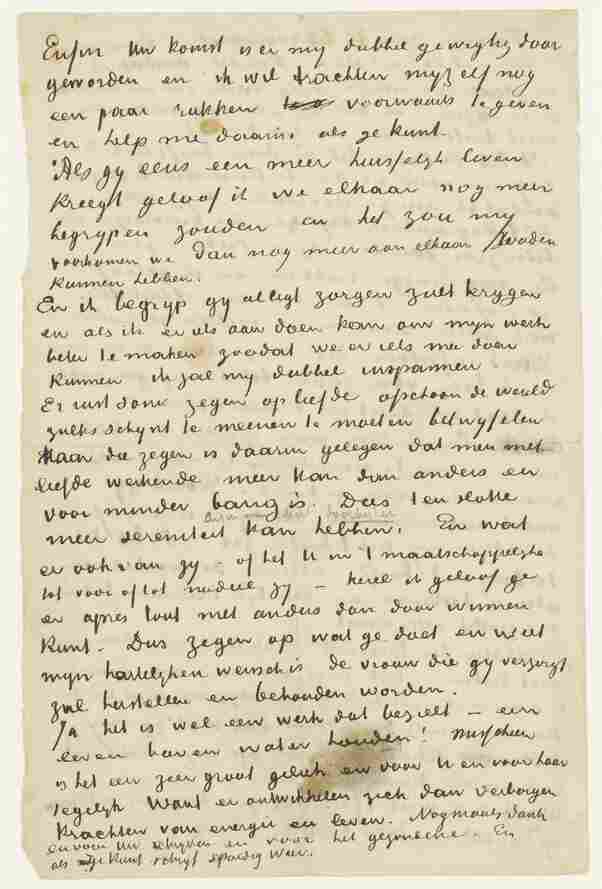 Enfin Uw komst is er my dubbel gewigtig door
geworden en ik wil trachten myzelf nog
een paar rukken voorwaarts te geven
en help me daarin als ge kunt.
Als gy eens een meer huisselyk leven
kreegt geloof ik we elkaar nog meer
begrypen zouden en het zou my
voorkomen we dan nog meer aan elkaar
kunnen hebben.
En ik begryp gy alligt zorgen zult krygen
en als ik er iets aan doen kan om myn werk
beter te maken zoodat we er iets mee doen
kunnen ik zal my dubbel inspannen
Er rust donc zegen op liefde ofschoon de wereld
zulks schynt te meenen te moeten betwyfelen
Maar die zegen is daarin gelegen dat men met
liefde werkende meer kan dan anders en
voor minder bang is. Dus ten slotte
meer sereniteit kan hebben. En wat
er ook van zy – of het U in 't maatschappelyke
tot voor of tot nadeel zy – kerel ik geloof ge
er après tout niet anders dan door winnen
kunt. Dus zegen op wat ge doet en weet
myn hartelyken wensch is de vrouw die gy verzorgt
zal herstellen en behouden worden.
Ja het is wel een werk dat bezielt – een
leven boven water houden! Misschien
is het een zeer groot geluk en voor U en voor haar
tegelyk Want er ontwikkelen zich dan verborgen
krachten van energie en leven. Nogmaals dank
en voor Uw schryven en voor het gezondene. En
als ge kunt schryf spoedig weer.